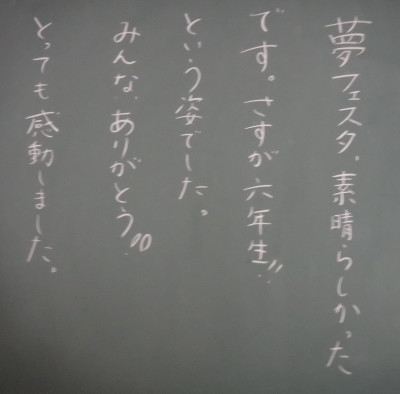 夢フェスタ。素晴らしかった
です。さすが六年生!!
という姿でした。
みんな、ありがとう!!
とっても感動しました。